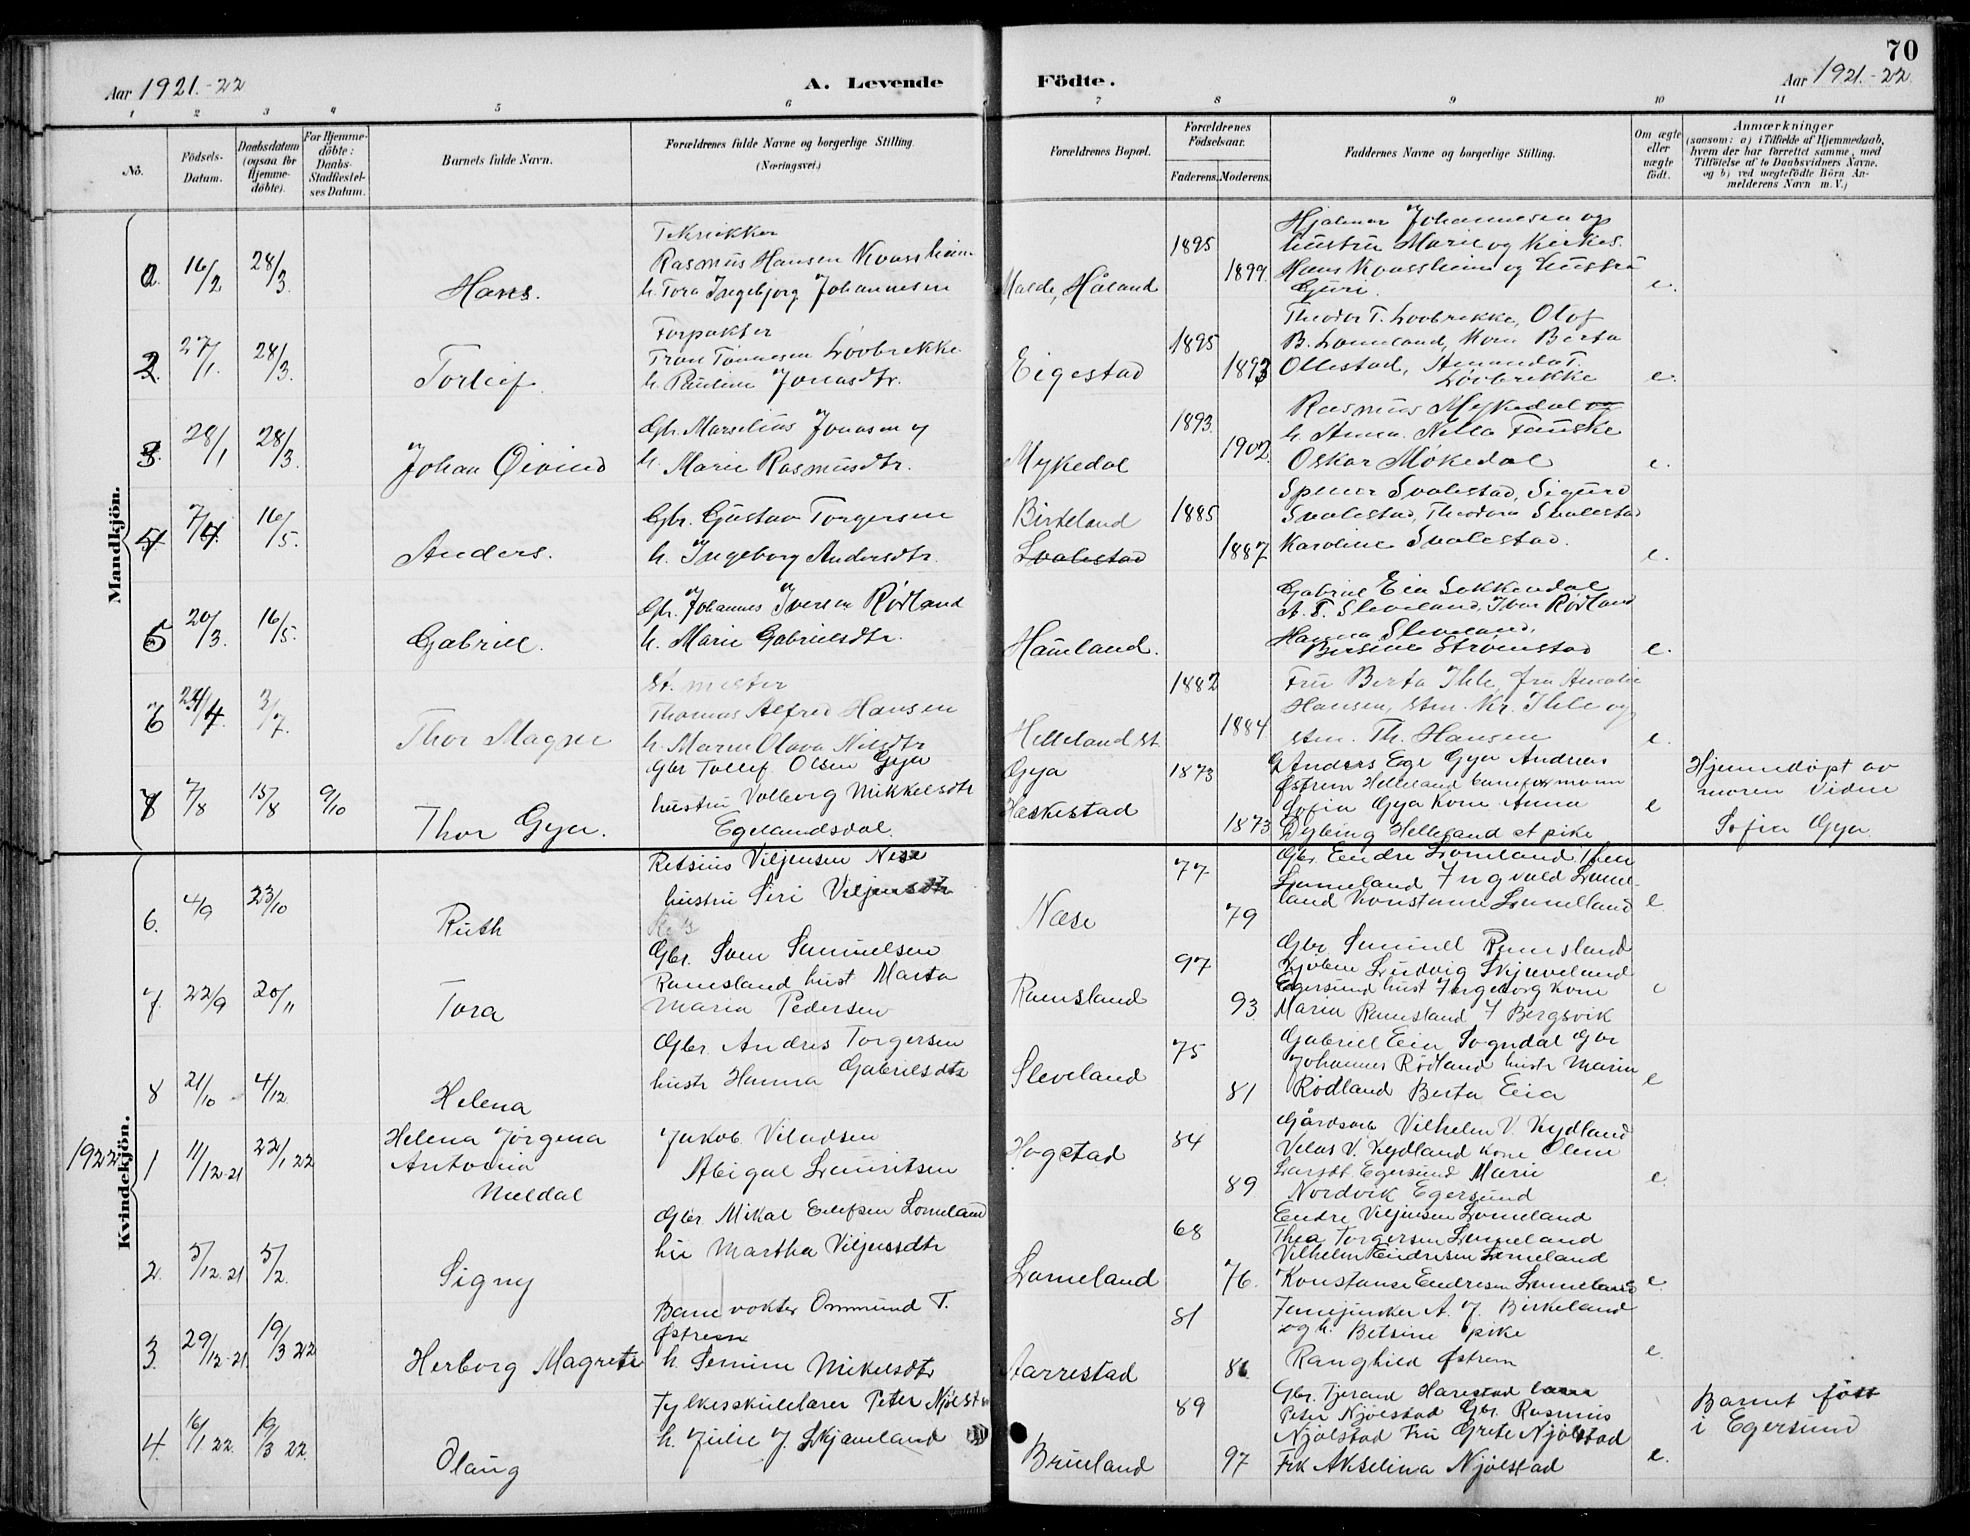 70
Aar 1921.-22
A. Levende
Födte.
Aar 1921.-22.
1 2 3 4 5 6 7 8 9 10 11
No.
Födsels-
Datum.
Daabsdatum
(ogsaa for
Hjemme-
döbte).
For Hjemme-
döbte:
Daabs-
Stadfæstel-
ses Datum.
Barnets fulde Navn.
Forældrenes fulde Navne og borgerlige Stilling.
(Næringsvei.)
Forældrenes Bopæl.
Forældrenes
Födselsaar.
Faderens. Moderens.
Faddernes Navne og borgerlige Stilling.
Om ægte
eller
uægte
födt.
Anmærkninger
(saasom: a) i Tilfælde af Hjemmedaab,
hvem der har forrettet samme, med
Tilföielse af to Daabsvidners Navne,
og b) ved uægtefödte Börn An-
melderens Navn m. V.)
Mandkjön.
16/2 28/3 Hans.
Rasmus Hansen
h. Tora Ingebjorg Johannesen
Håland
1895 1899.
Hjalmar Johannesen og
hustru Marie og
og hustru
Guri.
e.
2. 27/1. 28/3. Torleif
Forpakter
Tron Tønnesen Lovbrekke
h. Pauline Jonasdtr.
Eigestad
1895 1893
Theodor T. Lovbrekke, Olaf
B. Lomeland, Kone Berta
Ollestad, Amanda T.
Lovbrekke
e.
3. 28/1 28/3. Johan Øivind
Gbr. Marselius Jonasen og
h. Marie Rasmusdtr.
Mykedal
1893. 1902.
Rasmus Mykedal og
h. Anna. Nella Fauske
Oskar Møkedal
e.
4 7/4. 16/5. Anders.
Gbr. Gustav Torgersen
h. Ingeborg Andersdtr.
Birkeland
Svalestad
1885 1887
Svalestad, Sigurd
Svalestad, Theodora Svalestad
Karoline Svalestad.
e.
5 20/3. 16/5. Gabriel.
Gbr. Johannes Iversen Rødland
h. Marie Gabrielsdtr.
Gabriel Eia Sokkendal
A. T. Sleveland, Ivar Rødland
Hanna Sleveland.
Strømstad
e.
6 24/4. 3/7. Thor Magne
St. mester
Thomas Alfred Hansen
h. Marie Olava Nilsdtr
Helleland st.
1882 1884
Fru Berta Ihle, fru Amalie
Hansen, stm. Kr. Ihle og
stm. Th. Hansen
e.
7/8 15/8 9/10 Thor Gya.
Gbr Tollef Olsen Gya
hustru Valborg Mikkelsdtr
Egelandsdal.
Gya
Heskestad
1873 1873
Anders Ege Gya Andreas
Østrem Helleland baneformann
Sofia Gya Kone Anna
Dybing Helleland et pike
e
Hjemmedøpt av
moren Vidne
Sofia Gya
Kvindekjön.
6. 4/9 23/10 Ruth
Retsius Viljensen Nese
hustru Siri Viljensdtr
Næse
77 79
Gbr. Endre Lomeland Thea
Lomeland Ingvald Lomel-
land Konstanse Lomelland
e
7. 22/9 20/11 Tora
Gbr. Sven Samuelsen
Ramsland hust Marta
Maria Pedersen
Ramsland
97 93.
Gbr Samuel Ramsland
Ludvig Skjeveland
Egersund hust Ingeborg Kone
Maria Ramsland I Bergsvik
8 21/10 4/12. Helena
Gbr. Andres Torgersen
hustr Hanna Gabrielsdtr
Sleveland
75 81
Gabriel Eia Sogndal Gbr
Johannes Rødland hustr Maria
Rødland Berta Eia
e
1922
1 11/12.21 22/1 22
Helena Jørgena
Antonia
Meldal
Jakob Viladsen
Abigal Lauritsen
Hogstad
84 89
Gårdsarb Vilhelm V. Kydland
Velas V. Kydland kone Olene
Egersund Marie
Nordvik Egersund
e.
2. 5/12.21 5/2. Signy
Gbr. Mikal Eilefsen Lomeland
hu Martha Viljensdtr
Lomeland
68 76.
Endre Viljensen Lomeland
Thea Torgersen Lomeland
Vilhelm Endresen Lomeland
Konstanse Endresen Lomeland
e.
3. 29/12.21 19/3 22 Herborg Magrete
Banevokter Ommund T.
Østrem
h. Semine Mikelsdtr
Aarrestad
81 86
A. J. Birkeland
og h. Betsine pike
Ranghild Østrem
e.
4. 16/1 22. 19/3 22. Olaug
Fylkesskulelærer Peter Njølstad
h. Julie J. Skjæveland
Bruland
89 97
Gbr. Tjerand Harestad
Peter Njølstad Gbr. Rasmus
Njølstad Fru Grete Njølstad
Frk Akselina Njølstad
e.
Barnet født
i Egersund